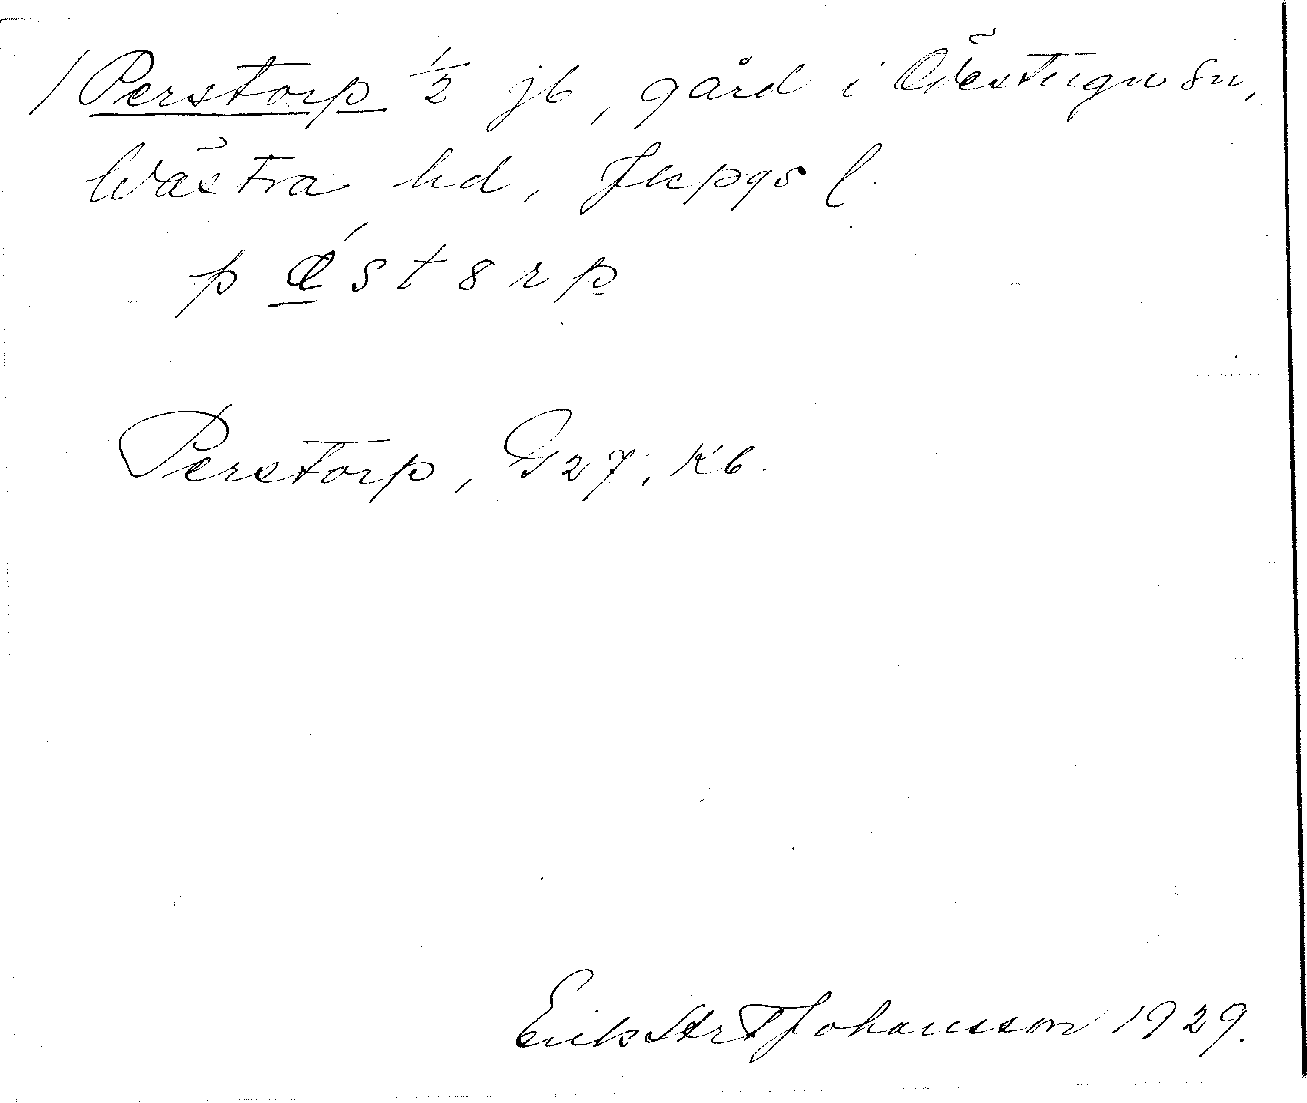 1/ Perstorp 1/2 jb, gård i Öreryds sn,
Wästra hd, Jkpgs l.
p ǽ s t o r p
Perstorp, G27, K6.
Erik Abr Johansson 1929.